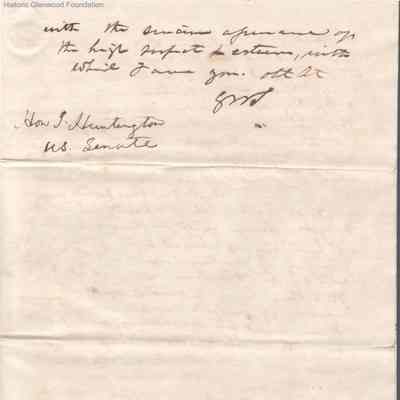 Historic Glenwood Foundation
with the sincere assurance of
the high respect & esteem, with
which I am your obt St
Hon J. Huntington
U.S. Senate